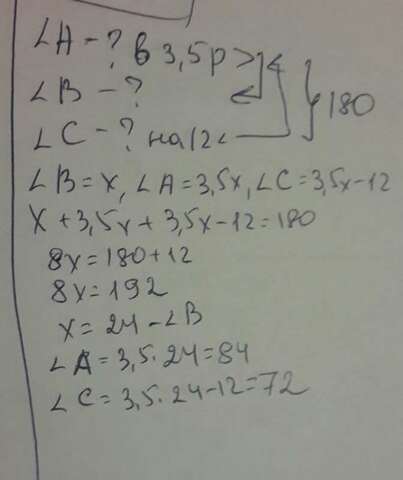 ∠A - ? в 3,5 р >
∠B - ?
∠C - ? на 12 <
180
∠B = x, ∠A = 3,5x, ∠C = 3,5x - 12
x + 3,5x + 3,5x - 12 = 180
8x = 180 + 12
8x = 192
x = 24 - ∠B
∠A = 3,5 · 24 = 84
∠C = 3,5 · 24 - 12 = 72